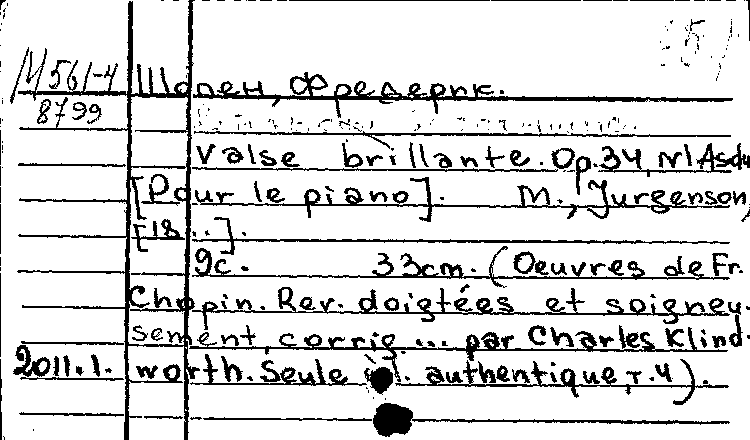 М561-4 Шопен, Фредерик.
8799
Valse brillante. Op.34, №1 Asdu
[Pour le piano]. M., Jurgenson,
[18..].
9с. 33cm. (Oeuvres de Fr.
Chopin. Rev. doigtées et soigney-
sement, corrig... par Charles Klind-
2011.1. worth. Seule authentique, т.4).